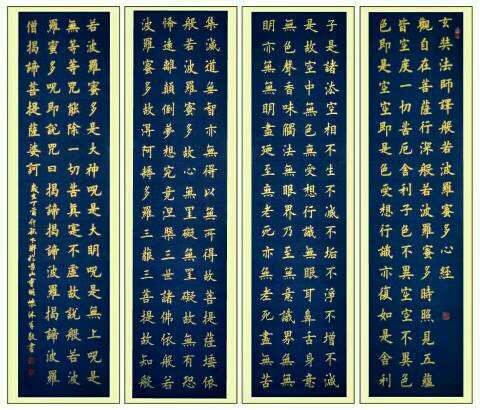 玄奘法師譯般若波羅蜜多心經
觀自在菩薩行深般若波羅蜜多時照見五蘊
皆空度一切苦厄舍利子色不異空空不異色
色即是空空即是色受想行識亦復如是舍利
子是諸法空相不生不滅不垢不淨不增不減
是故空中無色無受想行識無眼耳鼻舌身意
無色聲香味觸法無眼界乃至無意識界無無
明亦無無明盡乃至無老死亦無老死盡無苦
集滅道無智亦無得以無所得故菩提薩埵依
般若波羅蜜多故心無罣礙無罣礙故無有恐
怖遠離顛倒夢想究竟涅槃三世諸佛依般若
波羅蜜多故得阿耨多羅三藐三菩提故知般
若波羅蜜多是大神呪是大明呪是無上呪是
無等等呪能除一切苦真實不虛故說般若波
羅蜜多呪即說呪曰揭諦揭諦波羅揭諦波羅
僧揭諦菩提薩婆訶
歲在丁酉仲秋 敬書